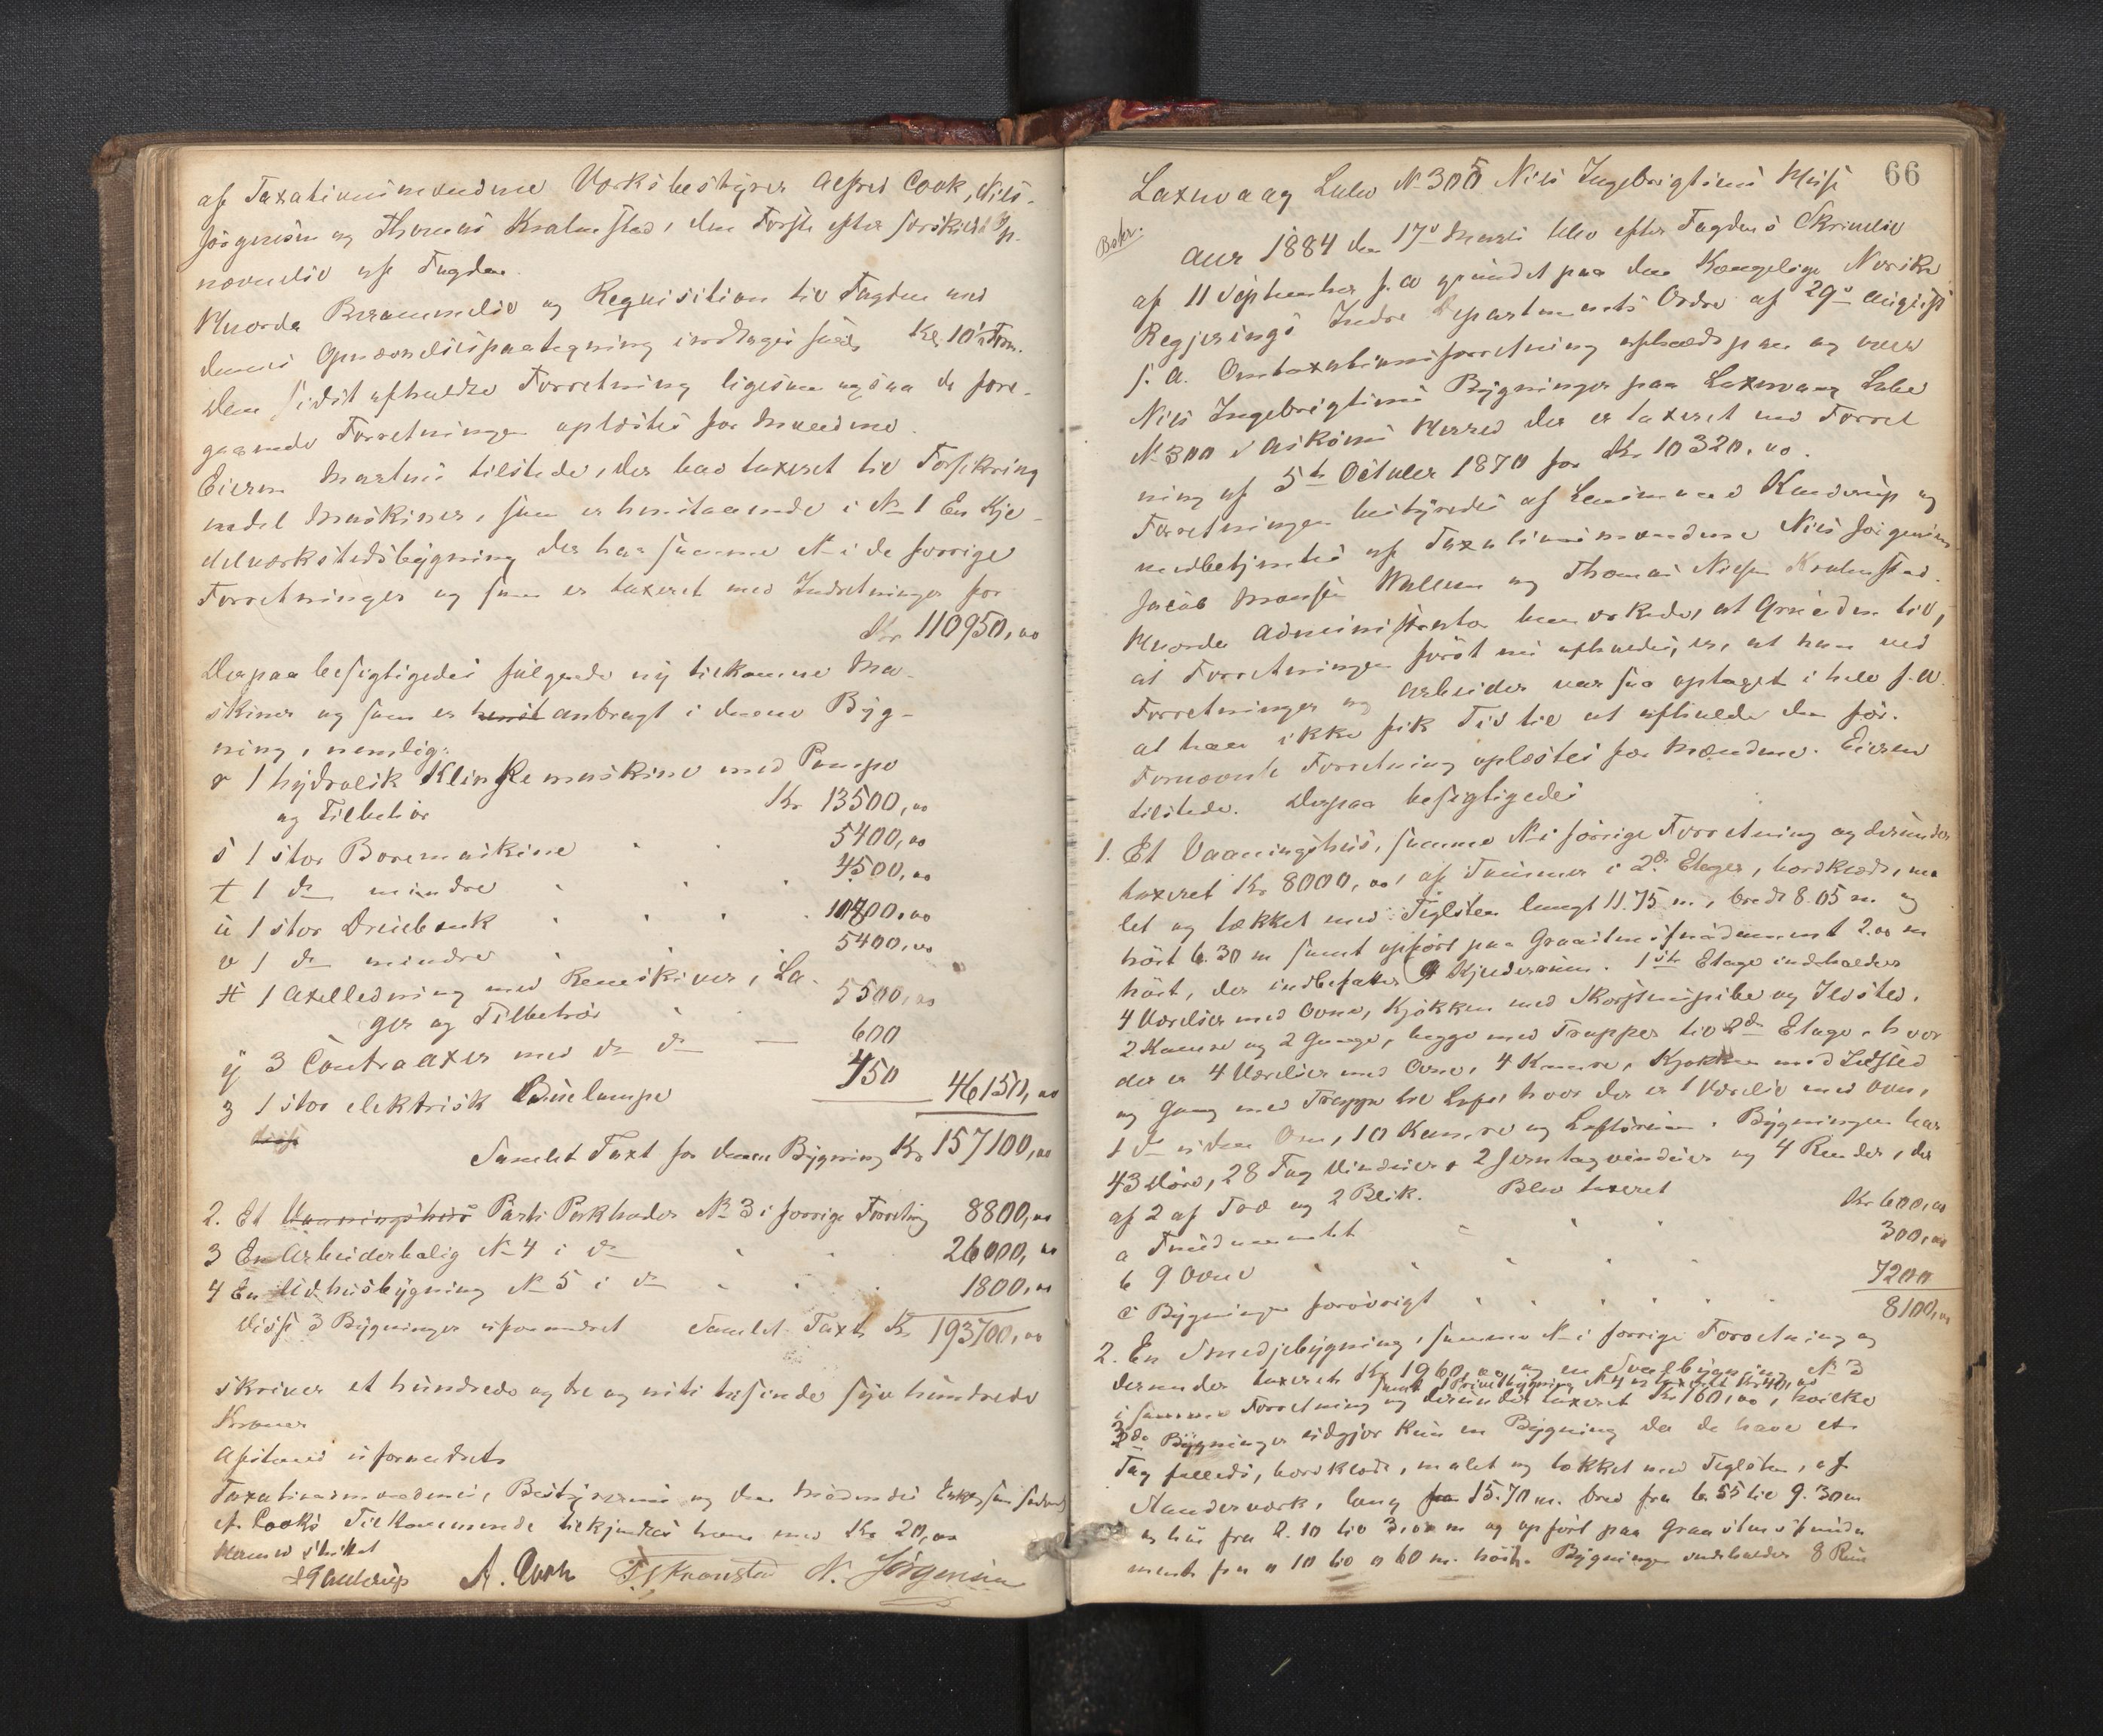 af Taxationsmændene Værksbestyrer Alfred Cook, Niels
Jörgensen og Thomas Kvalmsted, den Förste efter særskilt Op-
nævnelse af Fogden.
Hvorda Berammelse og Requisition til Fogden med
dennes Opnævnelsespaategning indtages saal. Kl. 10 Form.
Den sidst afholdte Forretning ligesom ogsaa de fore-
gaaende Forretninger oplæstes for Mændene.
Eieren Martens tilstede, der bad taxeret til Forsikring
endel Maskiner, som er henstaaende i No 1 En Kje-
delværkstedsbygning der har samme No i de forrige
Forretninger og som er taxeret med Indretninger for
Kr 110950,00
Derpaa besigtigedes fölgende ny tilkomne Ma-
skiner og som er henst anbragt i denne Byg-
ning, nemlig:
r 1 hydralisk Klinkemaskine med Pumpe
og Tilbehör Kr 13500,00
s 1 stor Boremaskine 5400,00
t 1 do mindre 4500,00
u 1 stor Dreiebænk 10800,00
v 1 do mindre 5400,00
x 1 Axelledning med Remskiver, La-
ger og Tilbehör 5500,00
y 3 Contraaxer med do do 600
z 1 stor elektrisk Buelampe 450 46150,00
disse
Samlet Taxt for denne Bygning Kr 157100,00
2. Et Vaaningshus Parti Pakboder No 3 i forrige Forretning 8800,00
3 En Arbeiderbolig No 4 i do 26000,00
4 En Udhusbygning No 5 i do 1800,00
Disse 3 Bygninger uforandret Samlet Taxt Kr 193700,00
skriver et hundrede og tre og niti tusinde syv hundrede
Kroner
Afstand uforandret
Taxationsmændenes, Bestyrerens og den mödendes
A. Cooks Tilkommende tilkjendes ham med Kr 20,00
Hermed sluttet
A. Cook T. Kvamsted N. Jörgensen
66
Laxevaag Lübo No 305 Niels Ingebrigtsens Huse
Bekr.
Aar 1884 den 17de Marts blev efter Fogdens Skrivelse
af 11 September f. A grundet paa den Kongelige Norske
Regjerings Indre Departements Ordre af 29de August
f. A. Omtaxationsforretning afholdt paa og over
Niels Ingebrigtsens Bygninger paa Laxevaag Lübe
No 300 i Asköens Herred der er taxeret ved Forret
ning af 5te October 1870 for Kr 10320,00.
Forretningen bestyredes af Lensmand Kauderup og
medbetjentes af Taxationsmændene Niels Jörgensen
Jacob Monsen Wallem og Thomas Nielsen Kvalmsted.
Hvorda Administrator bemærkede, at Grunden til,
at Forretningen först nu afholdes, er, at han ved
Forretninger og Arbeider var saa optaget i hele f. A.
at han ikke fik Tid til at afholde den för.
Fornævnte Forretning oplæstes for Mændene. Eieren
tilstede. Derpaa besigtigedes
1. Et Vaaningshus, samme No i forrige Forretning og derunder
taxeret Kr 8000,00, af Tømmer i 2de Etager, bordklædt, ma
let og tækket med Teglsten langt 11.75 m, bredt 8.05 m og
höit 6.30 m samt opfört paa Graastensfundament 2.00 m
höit, der indbefatter 4 Kjelderrum. 1ste Etage indeholder
4 Værelser med Ovne, Kjökken med Skorstenspibe og Ildsted,
2 Kamre og 2 Gange, begge med Trapper til 2den Etage, hvor
der er 4 Værelser med Ovne, 4 Kamre, Kjökken med Ildsted
og Gang med Trappe til Loft, hvor der er 1 Værelse med Ovn,
1 do uden Ovn, 10 Kamre og Loftsrum. Bygningen har
43 Döre, 28 Fag Vinduer, 2 Jerntagvinduer og 4 Render, der
af 2 af Træ og 2 Blik. Blev taxeret
a Fundamentet Kr 600,00
b 9 Ovne 300,00
c Bygningen forövrigt 7200
8100,00
2. En Smedjebygning, samme No i forrige Forretning og
derunder taxeret Kr 1960,00, og en Svalbygning No 3
samt 1 Privetbygning No 4 er taxeret Kr 40,00
i samme Forretning og derunder taxeret Kr 160,00, hvilke
3de Bygninger udgjör kun en Bygning da de have et
Tag fælleds, bordklædt, malet og tækket med Teglsten, af
Standerværk, lang fra 15.70 m. bred fra 6.55 til 9.30 m
og höi fra 2.10 til 3,00 m og opfört paa Graastensfunda
ment fra 0 10 til 0 60 m. höit. Bygningen indeholder 8 Rum